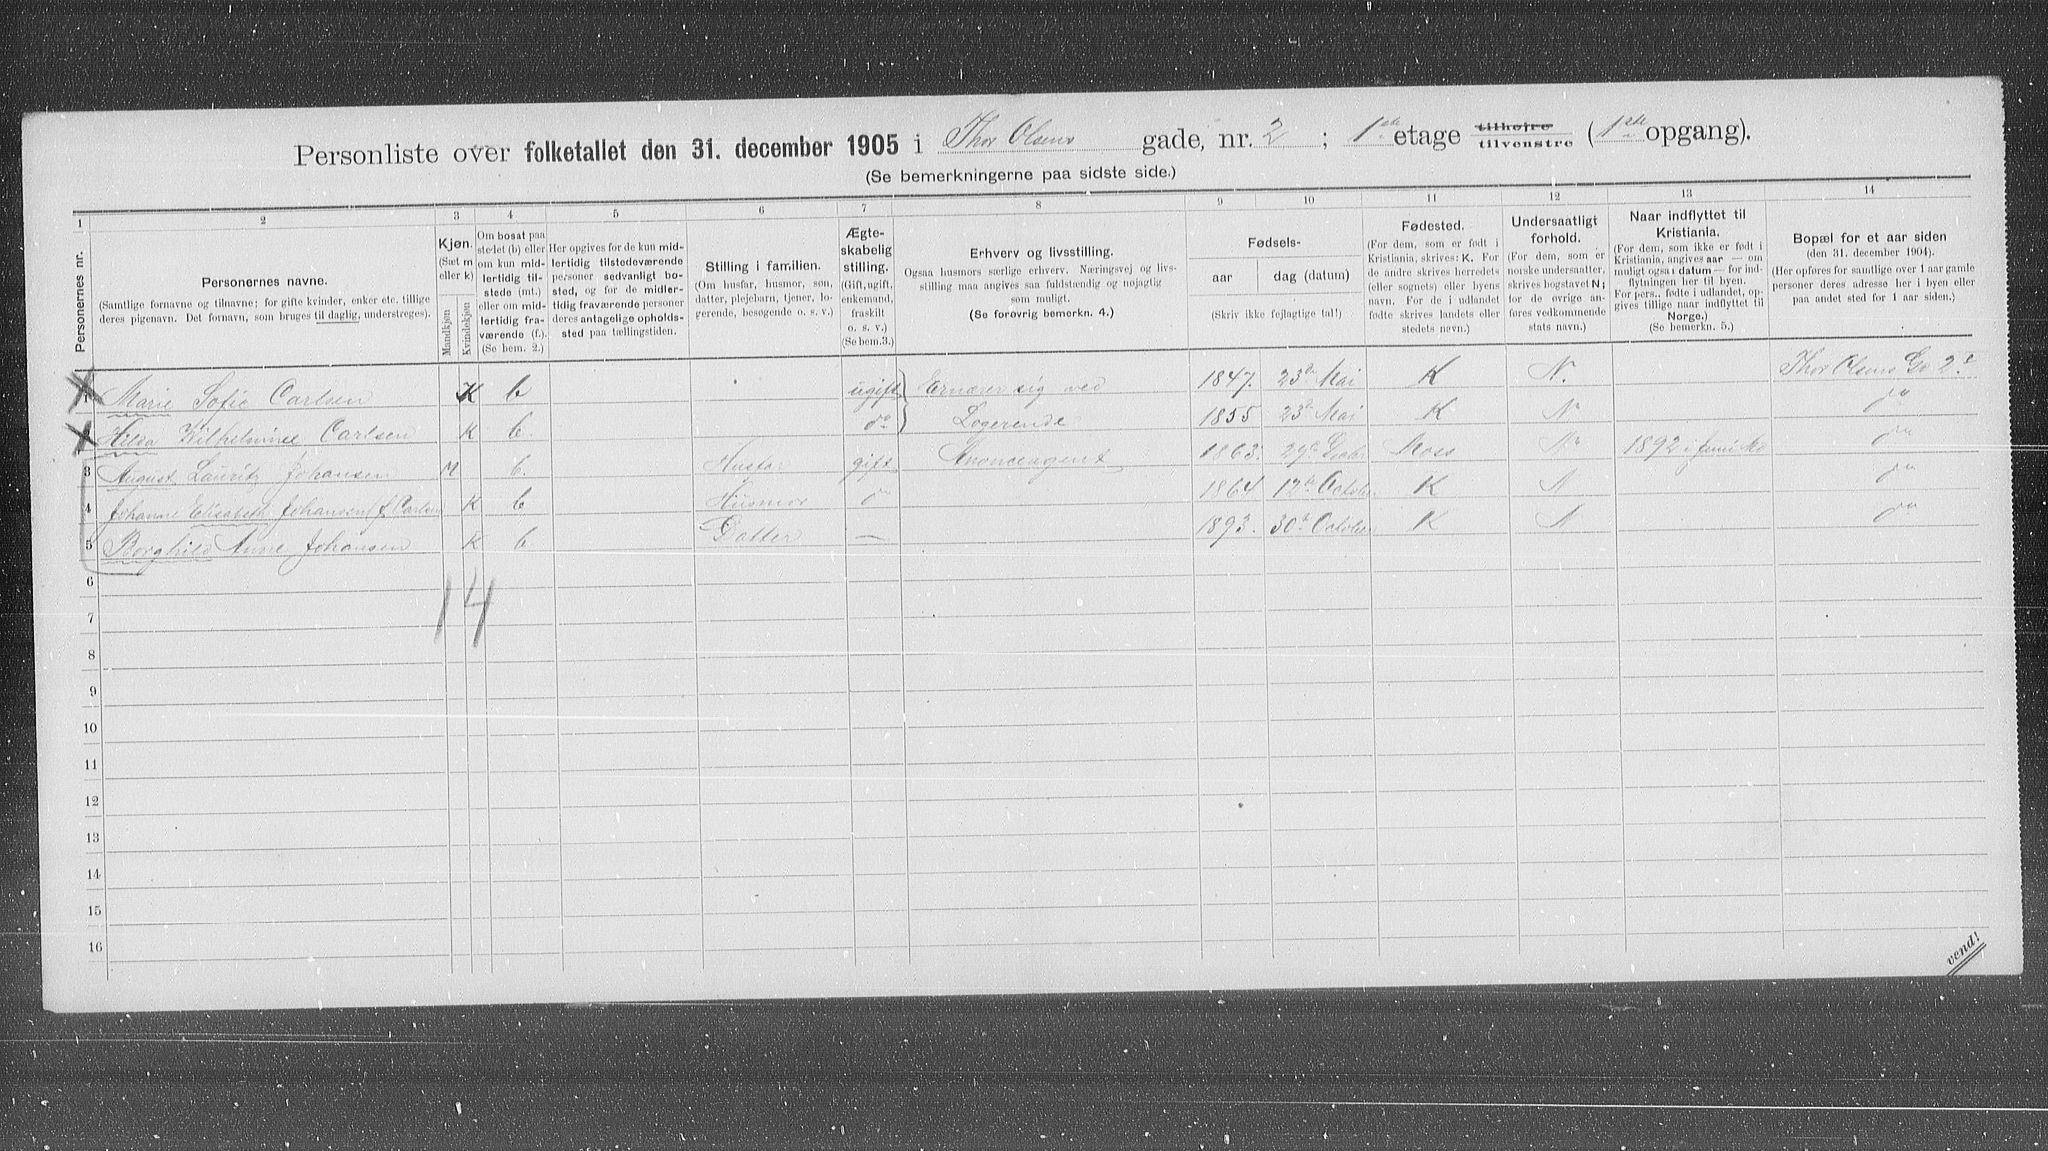 Personliste over folketallet den 31. december 1905 i Thor Olsens gade, nr. 2 ; 1ste etage tilhøjre tilvenstre (1ste opgang).
(Se bemerkningerne paa sidste side.)
1 2 3 4 5 6 7 8 9 10 11 12 13 14
Personernes nr.
Personernes navne.
(Samtlige fornavne og tilnavne; for gifte kvinder, enker etc. tillige
deres pigenavn. Det fornavn, som bruges til daglig, understreges).
Kjøn.
(Sæt m
eller k)
Mandkjøn
Kvindekjøn
Om bosat paa
stedet (b) eller
om kun mid-
lertidig til-
stede (mt.)
eller om mid-
lertidig fra-
værende (f.).
(Se bem. 2.)
Her opgives for de kun mid-
lertidig tilstedeværende
personer sedvanligt bo-
sted, og for de midler-
tidig fraværende personer
deres antagelige opholds-
sted paa tællingstiden.
Stilling i familien.
(Om husfar, husmor, søn,
datter, plejebarn, tjener, lo-
gerende, besøgende o. s. v.)
Ægte-
skabelig
stilling.
(Gift, ugift,
enkemand,
fraskilt
o. s. v.)
(Se bem. 3.)
Erhverv og livsstilling.
Ogsaa husmors særlige erhverv. Næringsvej og livs-
stilling maa angives saa fuldstændig og nøjagtig
som muligt.
(Se forøvrig bemerkn. 4.)
Fødsels-
aar
dag (datum)
(Skriv ikke fejlagtige tal!)
Fødested.
(For dem, som er født i
Kristiania, skrives: K. For
de andre skrives herredets
(eller sognets) eller byens
navn. For de i udlandet
fødte skrives landets eller
stedets navn.)
Undersaatligt
forhold.
(For dem, som er
norske undersaatter,
skrives bogstavet N;
for de øvrige an-
føres vedkommende
stats navn.)
Naar indflyttet til
Kristiania.
(For dem, som ikke er født i
Kristiania, angives aar — om
muligt ogsaa datum — for ind-
flytningen her til byen.
For pers., fødte i udlandet, op-
gives tillige naar indflyttet til
Norge.)
(Se bemerkn. 5.)
Bopæl for et aar siden
(den 31. december 1904).
(Her opføres for samtlige over 1 aar gamle
personer deres adresse her i byen eller
paa andet sted for 1 aar siden.)
1 Marie Sofie Carlsen K b ugift Ernærer sig ved 1847. 23de Mai K N. Thor Olsens Gd 2.
2 Hilda Wilhelmine Carlsen K b. do Logerende 1855 23de Mai K N do
3 August Lauritz Johansen M b. Husfar gift Anonceagent 1863. 29de Moss N 1892 do
4 Johanne Elisabeth Johansen f. Carlsen K b Husmor do 1864 12te October K N do
5 Borghild Anne Johansen K b Datter — 1893. 30te October K N do
6
14
7
8
9
10
11
12
13
14
15
16
vend!